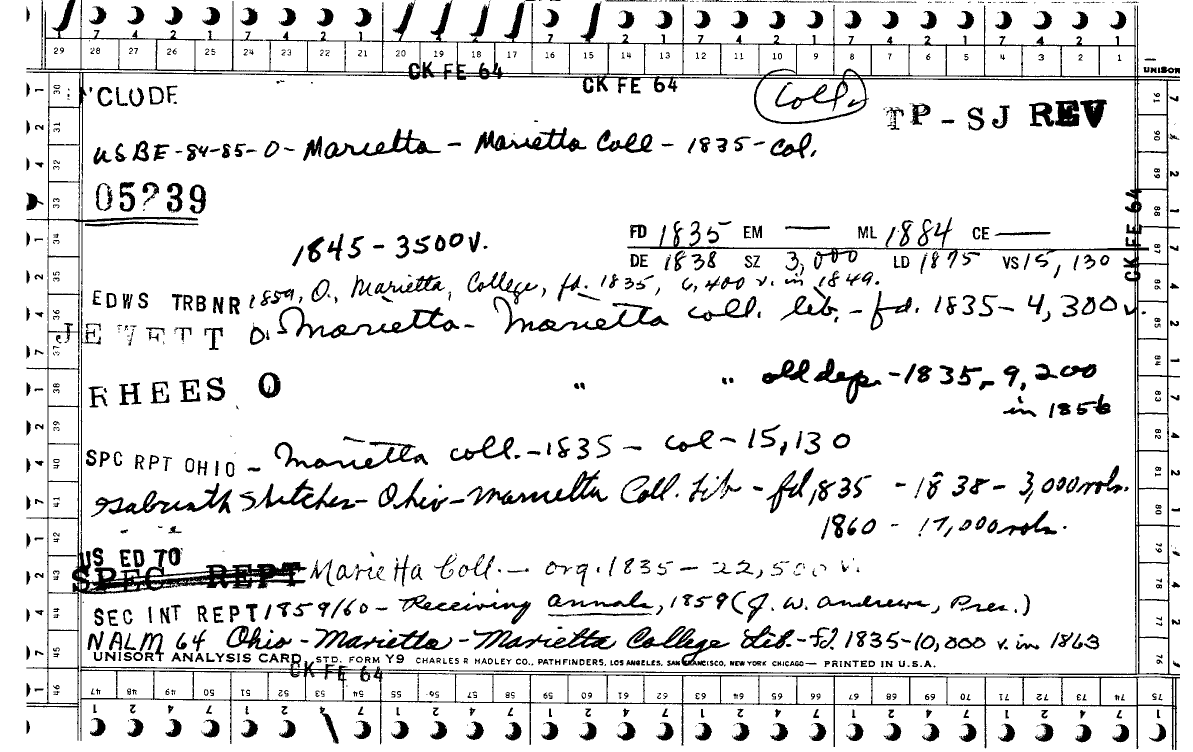 7 4 2 1 7 4 2 1 7 4 2 1 7 4 2 1 7 4 2 1 7 4 2 1 7 4 2 1
29 28 27 26 25 24 23 22 21 20 19 18 17 16 15 14 13 12 11 10 9 8 7 6 5 4 3 2 1
CK FE 64 CK FE 64 UNISORT
'CLODE Coll. TP-SJ REV
USBE-84-85-O-Marietta-Marietta Coll-1835-col.
05239
CK FE 64
FD 1835 EM — ML 1884 CE —
1845-3500v.
DE 1838 SZ 3,000 LD 1875 VS 15,130
EDWS TRBNR 1859, O., Marietta, College, fd. 1835, 6,400 v. in 1849.
JEWETT O-Marietta-Marietta coll. lib.-fd. 1835-4,300v.
RHEES O " " old dep.-1835-9,200
in 1856
SPC RPT OHIO - Marietta coll.-1835-col-15,130
Sketches-Ohio-Marietta Coll. Lib-fd 1835-1838-3,000 vols.
1860-17,000 vols.
US ED 70
SPEC REPT Marietta Coll.-org. 1835-22,500 v.
SEC INT REPT 1859/60-Receiving Annals, 1859 (J. W. Andrews, Pres.)
NALM 64 Ohio-Marietta-Marietta College Lib.-fd. 1835-10,000 v. in 1863
UNISORT ANALYSIS CARD STD. FORM Y9 CHARLES R HADLEY CO., PATHFINDERS, LOS ANGELES, SAN FRANCISCO, NEW YORK CHICAGO — PRINTED IN U.S.A.
CK FE 64
47 48 49 50 51 52 53 54 55 56 57 58 59 60 61 62 63 64 65 66 67 68 69 70 71 72 73 74 75
1 2 4 7 1 2 4 7 1 2 4 7 1 2 4 7 1 2 4 7 1 2 4 7 1 2 4 7